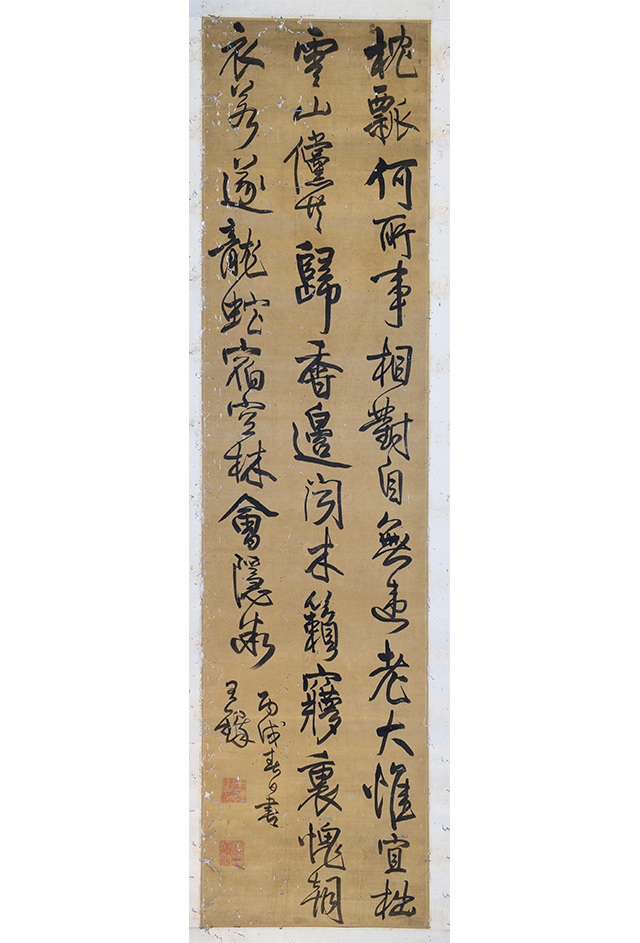 枕瓢何所事相對自無違老大惟宜拙
雲山儻共歸香邊聞木籟寢裏愧朝
衣若遂龍蛇宿空林會隱微
丙戌春日書
王鐸